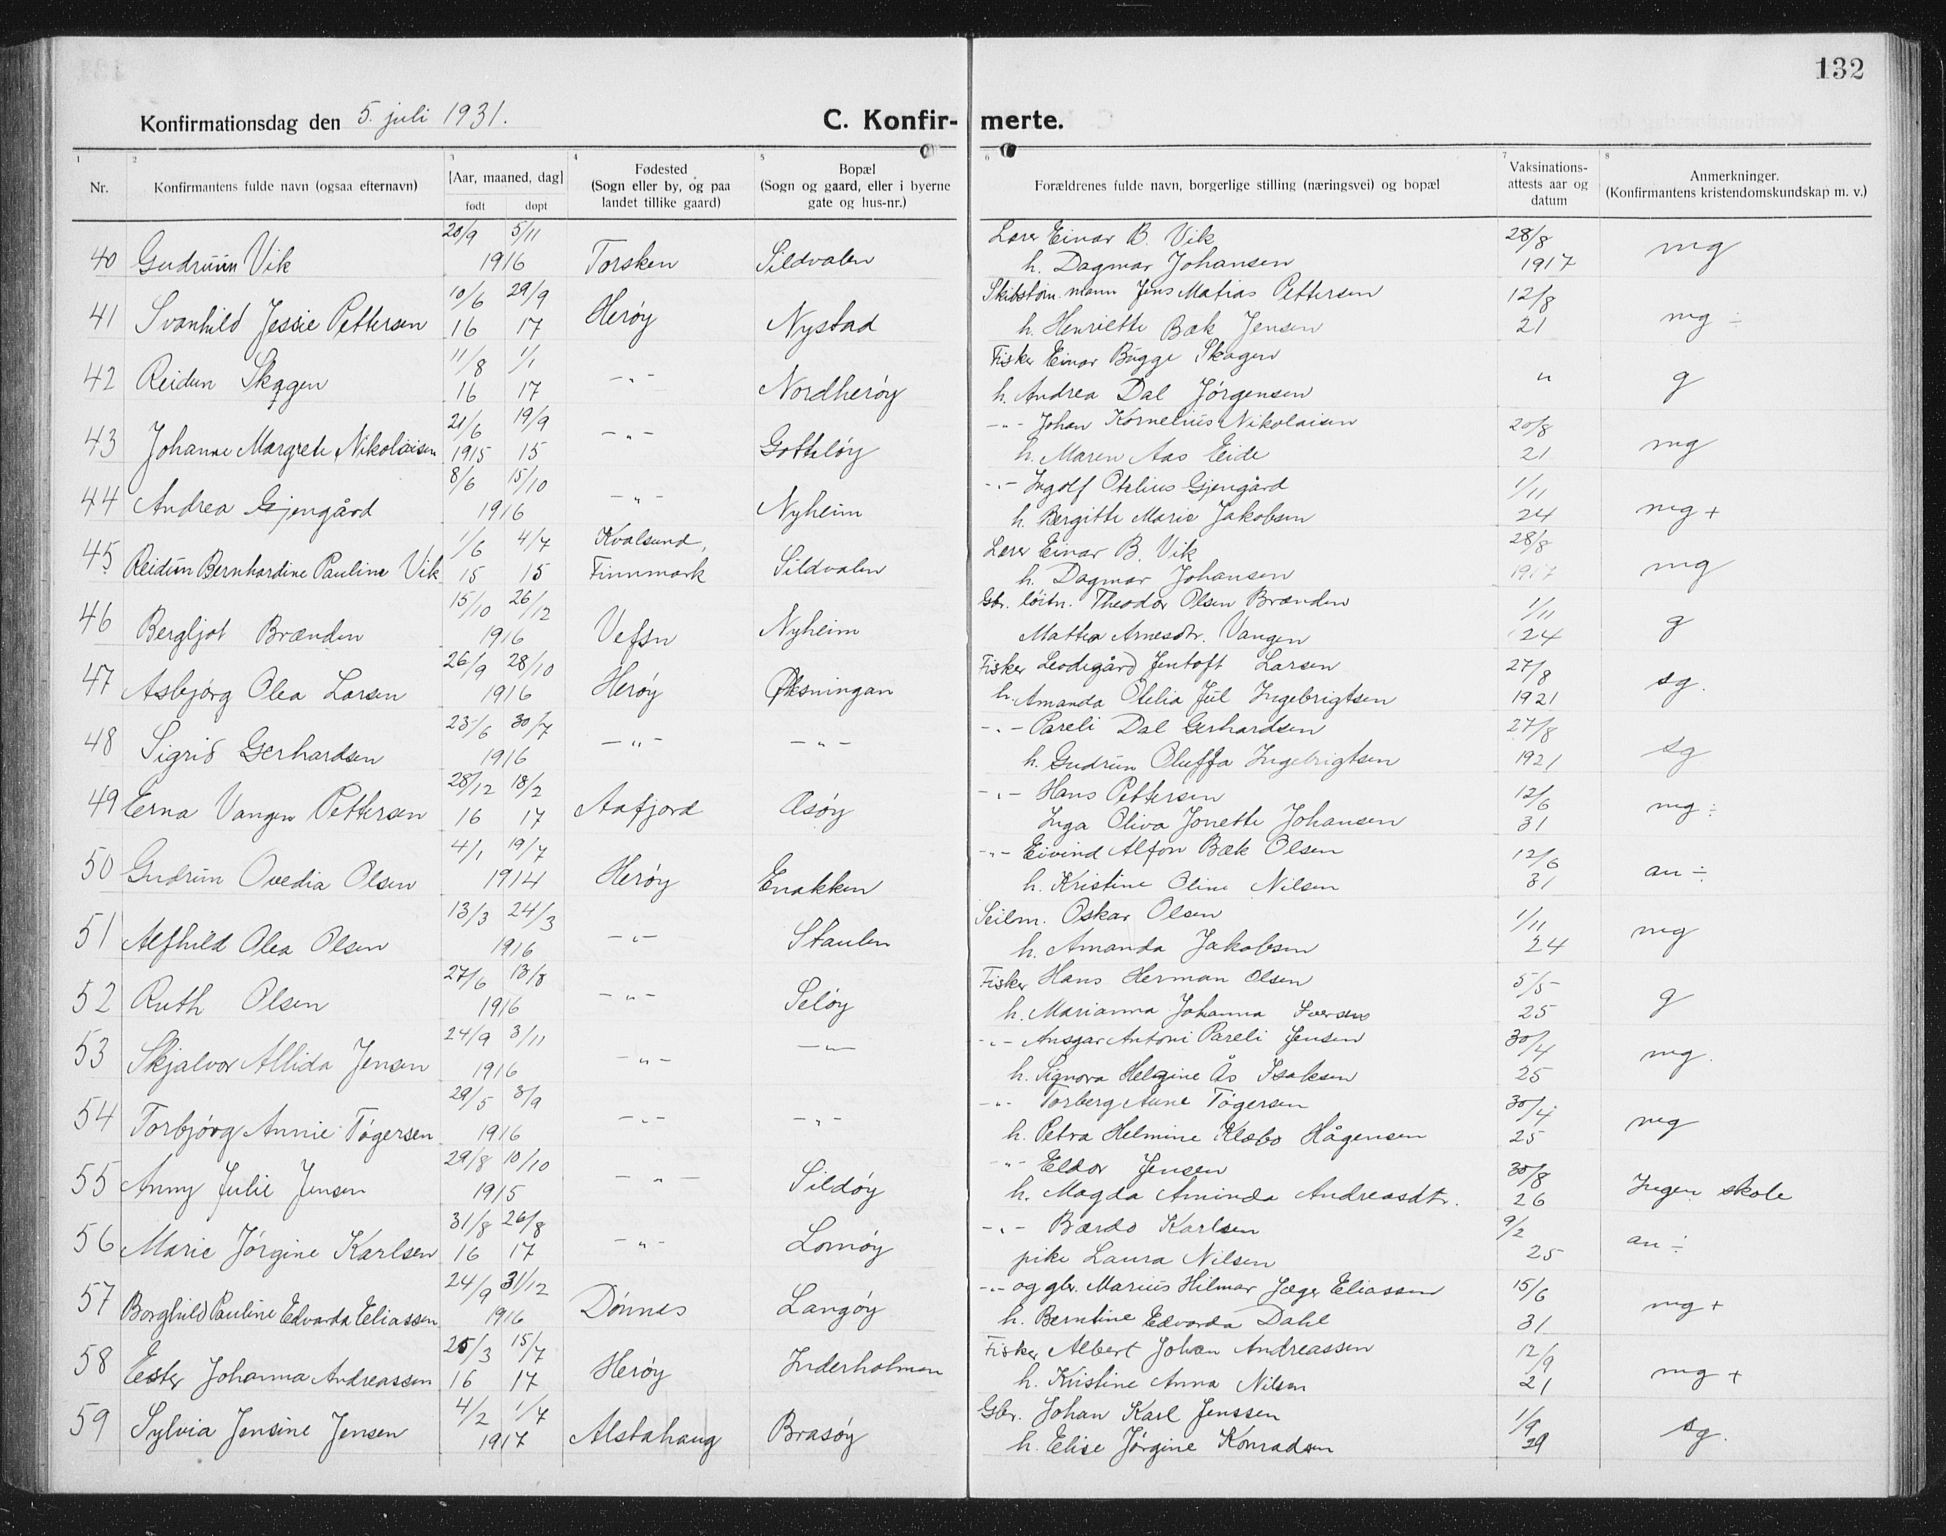 132
Konfirmationsdag den 5. juli 1931.
C. Konfir- merte.
1 2 3 4 5 6 7 8
Nr.
Konfirmantens fulde navn (ogsaa efternavn)
[Aar, maaned, dag]
født døpt
Fødested
(Sogn eller by, og paa
landet tillike gaard)
Bopæl
(Sogn og gaard, eller i byerne
gate og hus-nr.)
Forældrenes fulde navn, borgerlige stilling (næringsvei) og bopæl
Vaksinations-
attests aar og
datum
Anmerkninger.
(Konfirmantens kristendomskundskap m. v.)
20/9 5/11 Lærer Einar B. Vik 28/8
40 Gudrunn Vik 1916 Torsken Sildvalen h. Dagmar Johansen 1917 mg
10/6 29/9 mann Jens Matias Pettersen 12/8
41 Svanhild Jessie Pettersen 16 17 Herøy Nystad h. Henriette Bæk Jensen 21 mg ÷
11/8 1/1 Fisker Einar Bugge Skagen
42 Reidun Skagen 16 17 -"- Nordherøy h. Andrea Dal Jørgensen " g
21/6 19/9 -"- Johan Kornelius Nikolaisen 20/8
43 Johanne Margrete Nikolaisen 1915 15 -"- Gotteløy h. Maren Aas Eide 21 mg
8/6 15/10 -"- Ingolf Otelius Gjengård 1/11
44 Andrea Gjengård 1916 -"- Nyheim h. Bergitte Marie Jakobsen 24 mg +
1/6 4/7 Kvalsund, Lærer Einar B. Vik 28/8
45 Reidun Bernhardine Pauline Vik 15 15 Finnmark Sildvalen h. Dagmar Johansen 1917 mg
15/10 26/12 Gbr. løitn. Theodor Olsen Brænden 1/11
46 Bergljot Brænden 1916 Vefsn Nyheim Mattea Arnesdtr. Vangen 24 g
26/9 28/10 Fisker Leodegård Jentoft Larsen 27/8
47 Asbjørg Olea Larsen 1916 Herøy Øksningan h. Amanda Otelia Jul Ingebrigtsen 1921 sg.
23/6 30/7 -"- Pareli Dal Gerhardsen 27/8
48 Sigrid Gerhardsen 1916 -"- -"- h. Gudrun Oluffa Ingebrigtsen 1921 sg
28/12 18/2 -"- Hans Pettersen 12/6
49 Erna Vangen Pettersen 16 17 Aafjord Osøy Inga Oliva Jonette Johansen 31 mg ÷
4/1 19/7 -"- Eivind Alfon Bæk Olsen 12/6
50 Gudrun Ovedia Olsen 1914 Herøy Enakken h. Kristine Oline Nilsen 31 an ÷
13/3 24/3 Seilm. Oskar Olsen 1/11
51 Alfhild Olea Olsen 1916 -"- Staulen h. Amanda Jakobsen 24 mg
27/6 13/8 Fisker Hans Herman Olsen 5/5
52 Ruth Olsen 1916 -"- Seløy h. Marianna Johanna Iversen 25 g
24/9 3/11 -"- Ansgar Antoni Pareli Jensen 30/4
53 Skjalvor Allida Jensen 1916 -"- -"- h. Signora Helgine Ås Isaksen 25 mg.
29/5 3/9 -"- Torberg Aune Tøgersen 30/4
54 Torbjørg Annie Tøgersen 1916 -"- -"- h. Petra Helmine Klæbo Hågensen 25 mg
29/8 10/10 -"- Eldor Jensen 30/8
55 Anny Julie Jensen 1915 -"- Sildøy h. Magda Aminda Andreasdtr. 26 Ingen skole
31/8 26/8 -"- Bærdo Karlsen 9/2
56 Marie Jørgine Karlsen 16 17 -"- Lomøy pike Laura Nilsen 25 an ÷
24/9 31/12 -"- og gbr. Marius Hilmar Jæger Eliassen 15/6
57 Borghild Pauline Edvarda Eliassen 1916 Dønnes Langøy h. Berntine Edvarda Dahl 31 mg +
25/3 15/7 Fisker Albert Johan Andreassen 12/9
58 Ester Johanna Andreassen 16 17 Herøy Inderholmen h. Kristine Anna Nilsen 21 mg +
4/2 1/7 Gbr. Johan Karl Jenssen 1/9
59 Sylvia Jensine Jensen 1917 Alstahaug Brasøy h. Elise Jørgine Konradsen 29 sg.